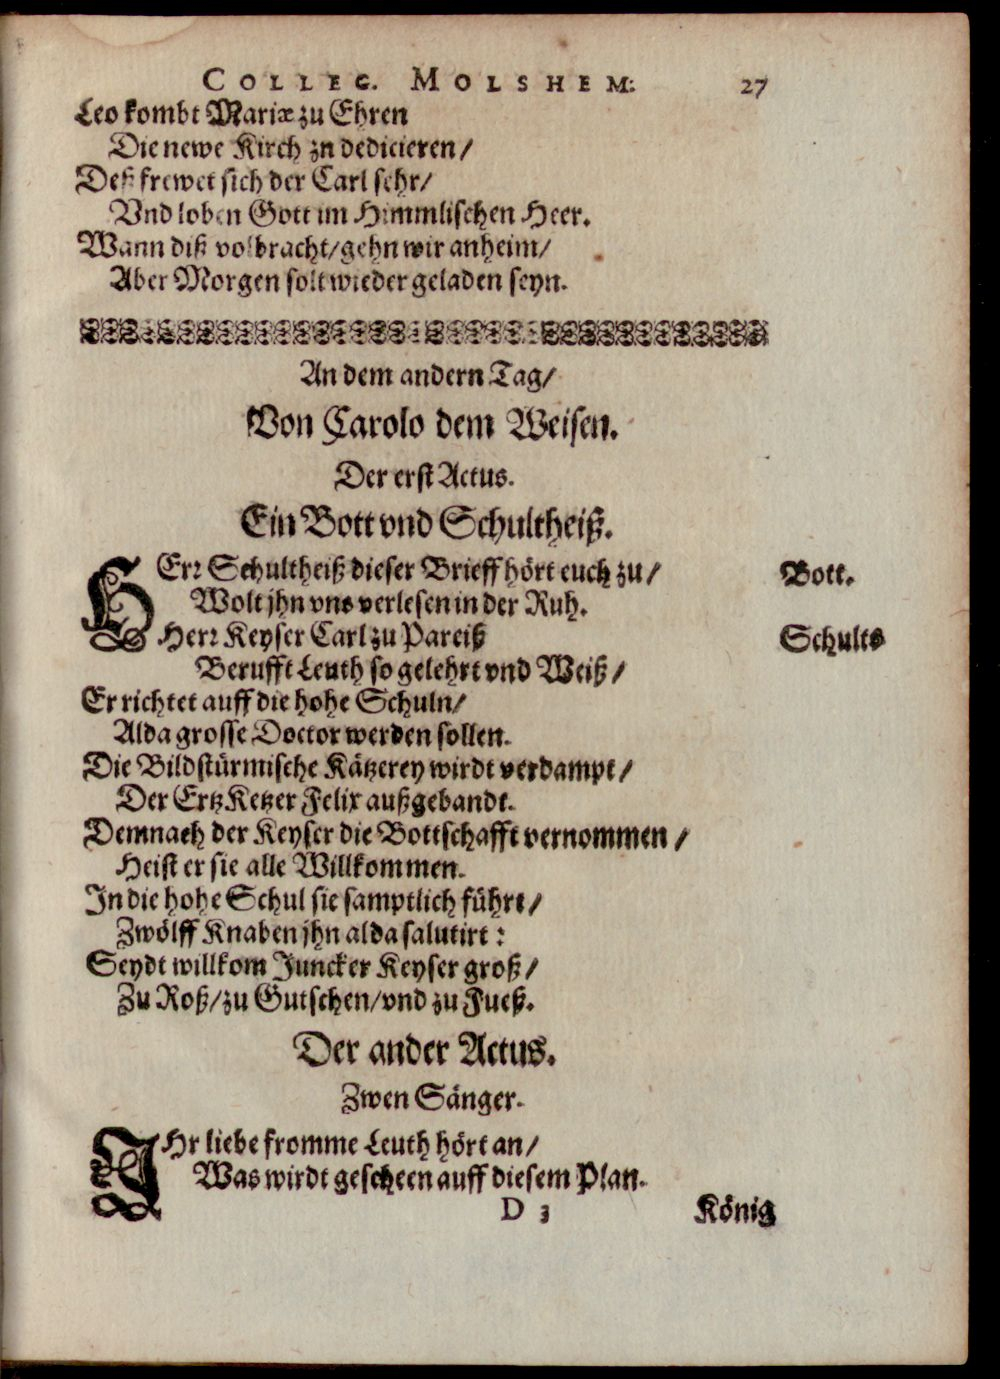 COLLEG. MOLSHEM: 27
Leo kombt Mariæ zu Ehren
Die newe Kirch zn dedicieren/
Deß frewet sich der Carl sehr/
Vnd loben Gott im Himmlischen Heer.
Wann diß volbracht/gehn wir anheim/
Aber Morgen solt wieder geladen seyn.
An dem andern Tag/
Von Carolo dem Weisen.
Der erst Actus.
Ein Bott vnd Schultheiß.
HErꝛ Schultheiß dieser Brieff hört euch zu/ Bott.
Wolt jhn vns verlesen in der Ruh.
Herꝛ Keyser Carl zu Pareiß Schults
Berufft Leuth so gelehrt vnd Weiß/
Er richtet auff die hohe Schuln/
Alda grosse Doctor werden sollen.
Die Bildstürmische Kätzerey wirdt verdampt/
Der Ertz Ketzer Felix außgebandt.
Demnach der Keyser die Bottschafft vernommen/
Heist er sie alle Willkommen.
In die hohe Schul sie samptlich führt/
Zwölff Knaben jhn alda salutirt:
Seydt willkom Juncker Keyser groß/
Zu Roß/zu Gutschen/vnd zu Fueß.
Der ander Actus.
Zwen Sänger.
IHr liebe fromme Leuth hört an/
Was wirdt gescheen auff diesem Plan.
D 3 König